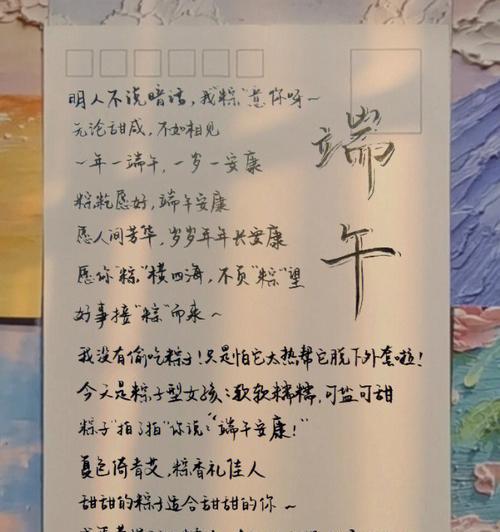 端午
明人不说暗话，我“粽”意你呀～
无论甜咸，不如相见
一年一端午，一岁一安康
粽粒愿好，端午安康
愿人间芳华，岁岁年年长安康
愿你“粽”横四海，不负“粽”望
好事接“粽”而来～
我没有偷吃粽子！只是怕它太热帮它脱下外套啦！
今天是粽子型女孩：软软糯糯，可盐可甜
粽子“拍了拍”你说：“端午安康！”
夏色倚青艾，粽香礼佳人
甜甜的粽子适合甜甜的你～